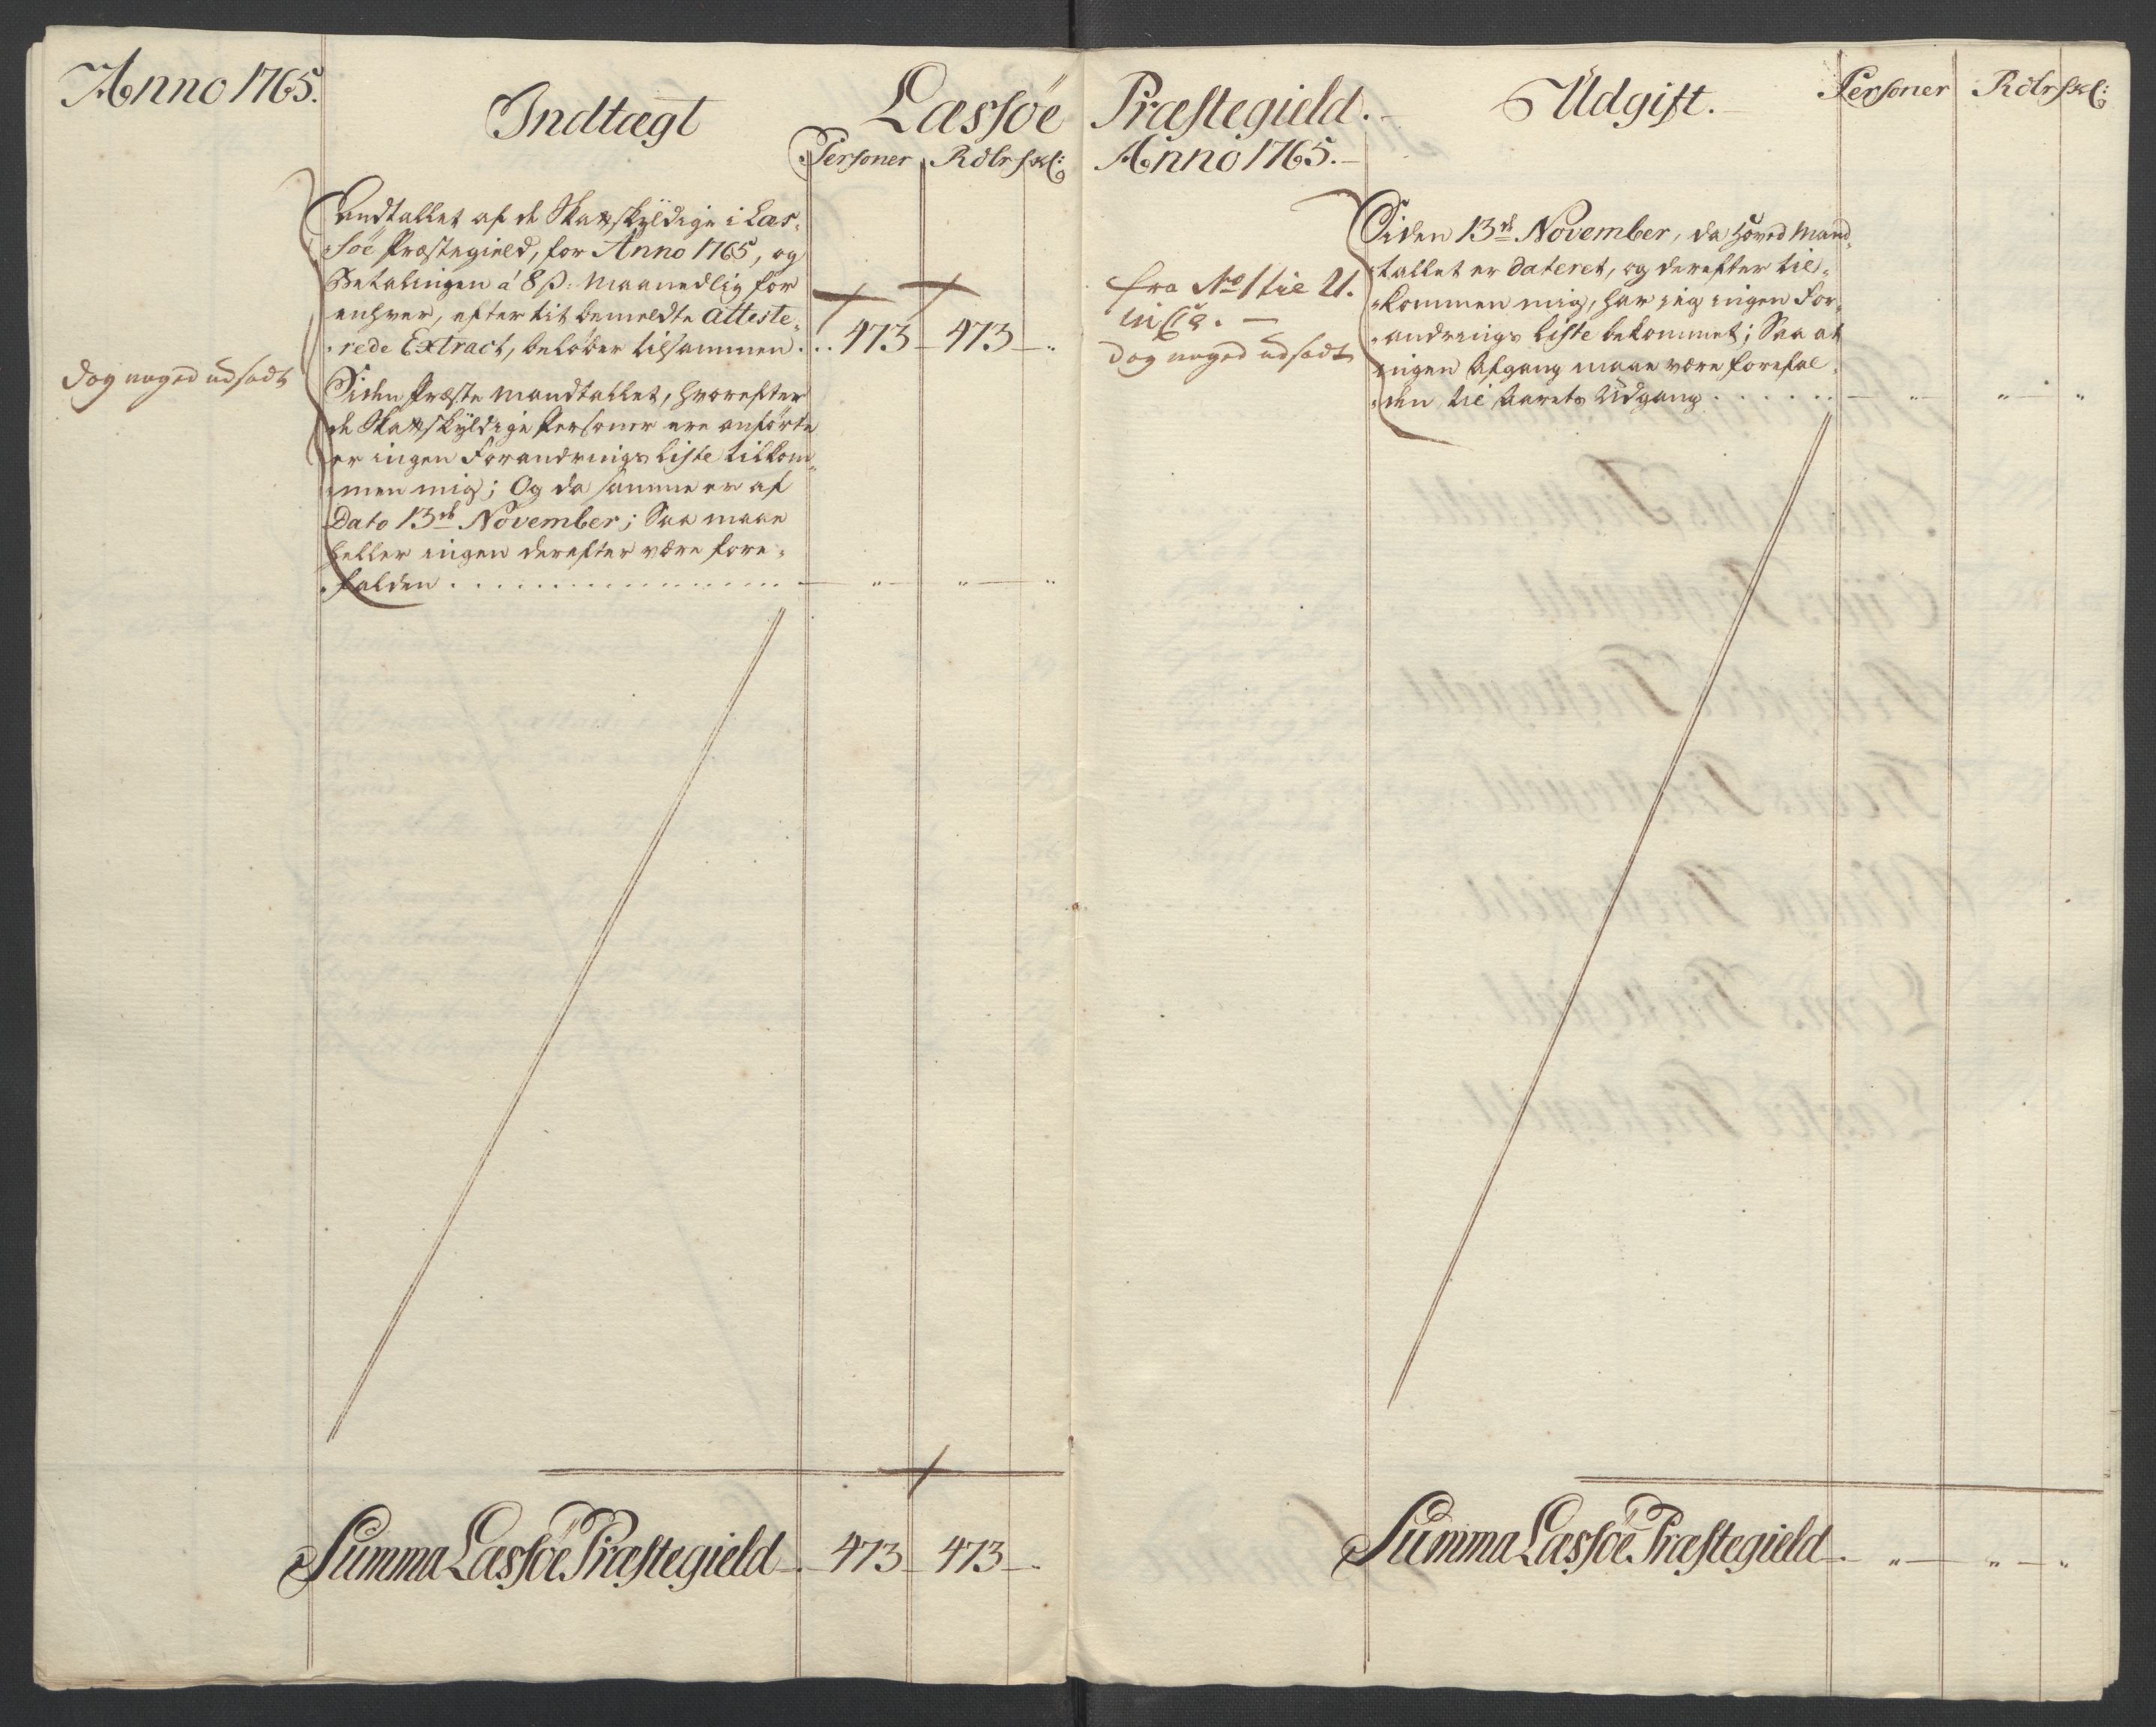 Anno 1765.
Indtægt
Læssöe
Personer Rdlr skl:
Andtallet af de Skatskÿldige i Læs-
söe Præstegield, for Anno 1765, og
Betalingen á 8 s. Maanedlig for
enhver, efter tit bemeldte atteste-
rede Extract, beløber tilsammen . . . 473 – 473 – „
dog noged udsadt
Siden Præste Mandtallet, hvorefter
de Skatskÿldige Personer ere anførte
er ingen Forandrings Liste tilkom-
men mig; Og da samme er af
Dato 13de November; Saa maae
heller ingen derefter være fore-
falden . . . . . . . . . . . . . . . . — „ — „ — „
Summa Læssöe Præstegield . 473 – 473 – „
Præstegield.
Anno 1765.
Udgift.
Personer Rdlr skl:
fra No 1 til 21.
dog noged udsadt
Siden 13de November, da Hoved Mand-
tallet er dateret, og derefter til-
kommen mig, har jeg ingen For-
andrings Liste bekommet; Saa at
ingen Afgang maae være forefal-
den til Aarets Udgang . . . . . . — „ — „ — „
Summa Læssöe Præstegield . „ — „ — „